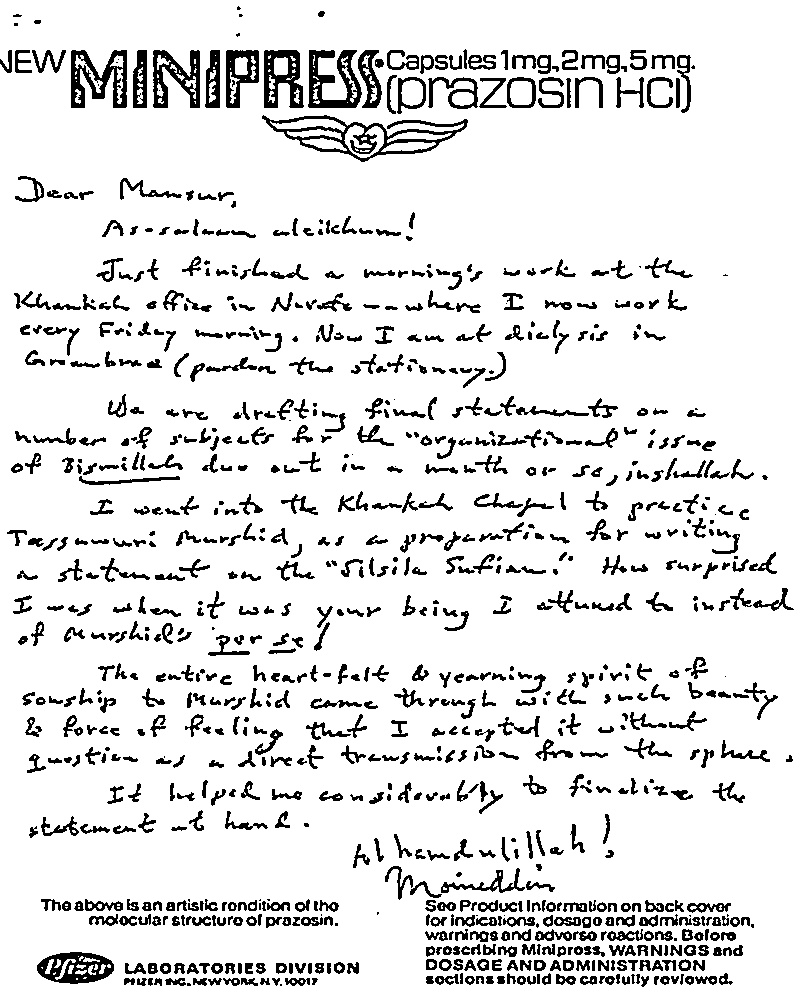 NEW MINIPRESS Capsules 1mg, 2mg, 5mg.
(prazosin HCl)
Dear Mansur,
As-salaam aleikhum!
Just finished a morning's work at the
Khankah office in Novato — where I now work
every Friday morning. Now I am at dialysis in
Greenbrae (pardon the stationery.)
We are drafting final statements on a
number of subjects for the "organizational" issue
of Bismillah due out in a month or so, inshallah.
I went into the Khankah Chapel to practice
Tassawuri Murshid, as a preparation for writing
a statement on the "Silsila Sufian." How surprised
I was when it was your being I attuned to instead
of Murshid's per se!
The entire heart-felt & yearning spirit of
sonship to Murshid came through with such beauty
& force of feeling that I accepted it without
question as a direct transmission from the sphere.
It helped me considerably to finalize the
statement at hand.
Alhamdulillah!
Moineddin
The above is an artistic rendition of the
molecular structure of prazosin.
See Product Information on back cover
for indications, dosage and administration,
warnings and adverse reactions. Before
prescribing Minipress, WARNINGS and
DOSAGE AND ADMINISTRATION
sections should be carefully reviewed.
Pfizer LABORATORIES DIVISION
PFIZER INC., NEW YORK, N.Y. 10017